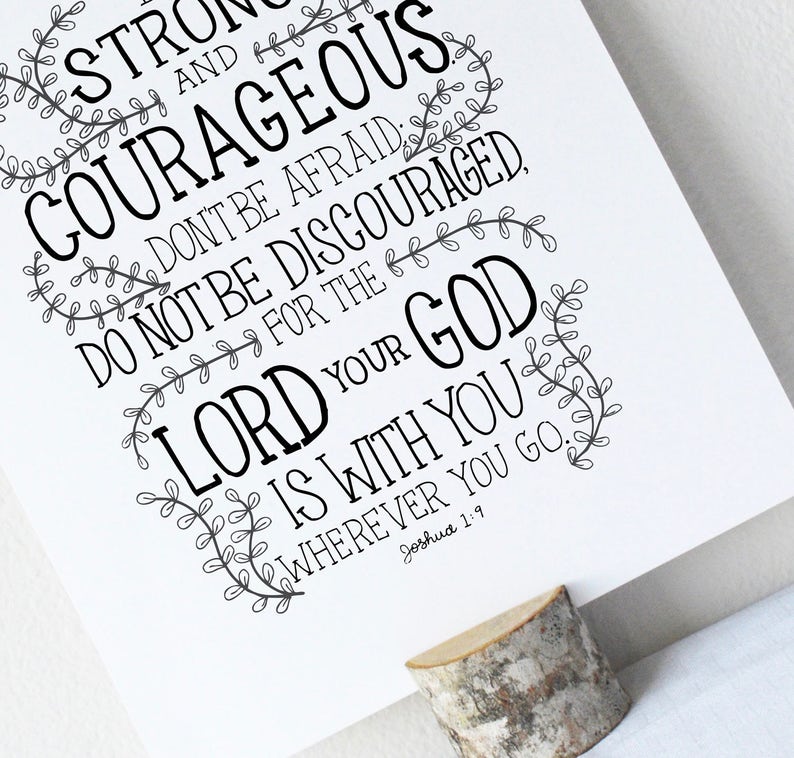 STRONG
AND
COURAGEOUS.
DON'T BE AFRAID;
DO NOT BE DISCOURAGED,
FOR THE
LORD YOUR GOD
IS WITH YOU
WHEREVER YOU GO.
Joshua 1:9